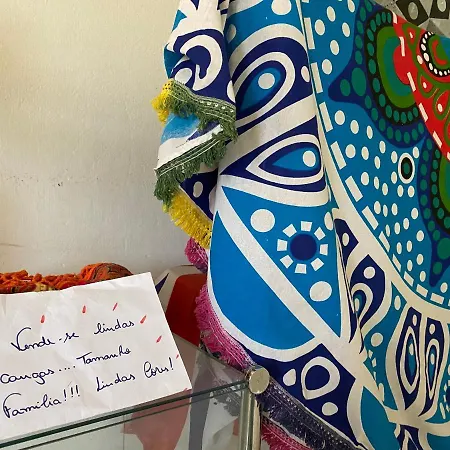 Vende-se lindas
cangas.... Tamanho
Família!!! Lindas Cores!